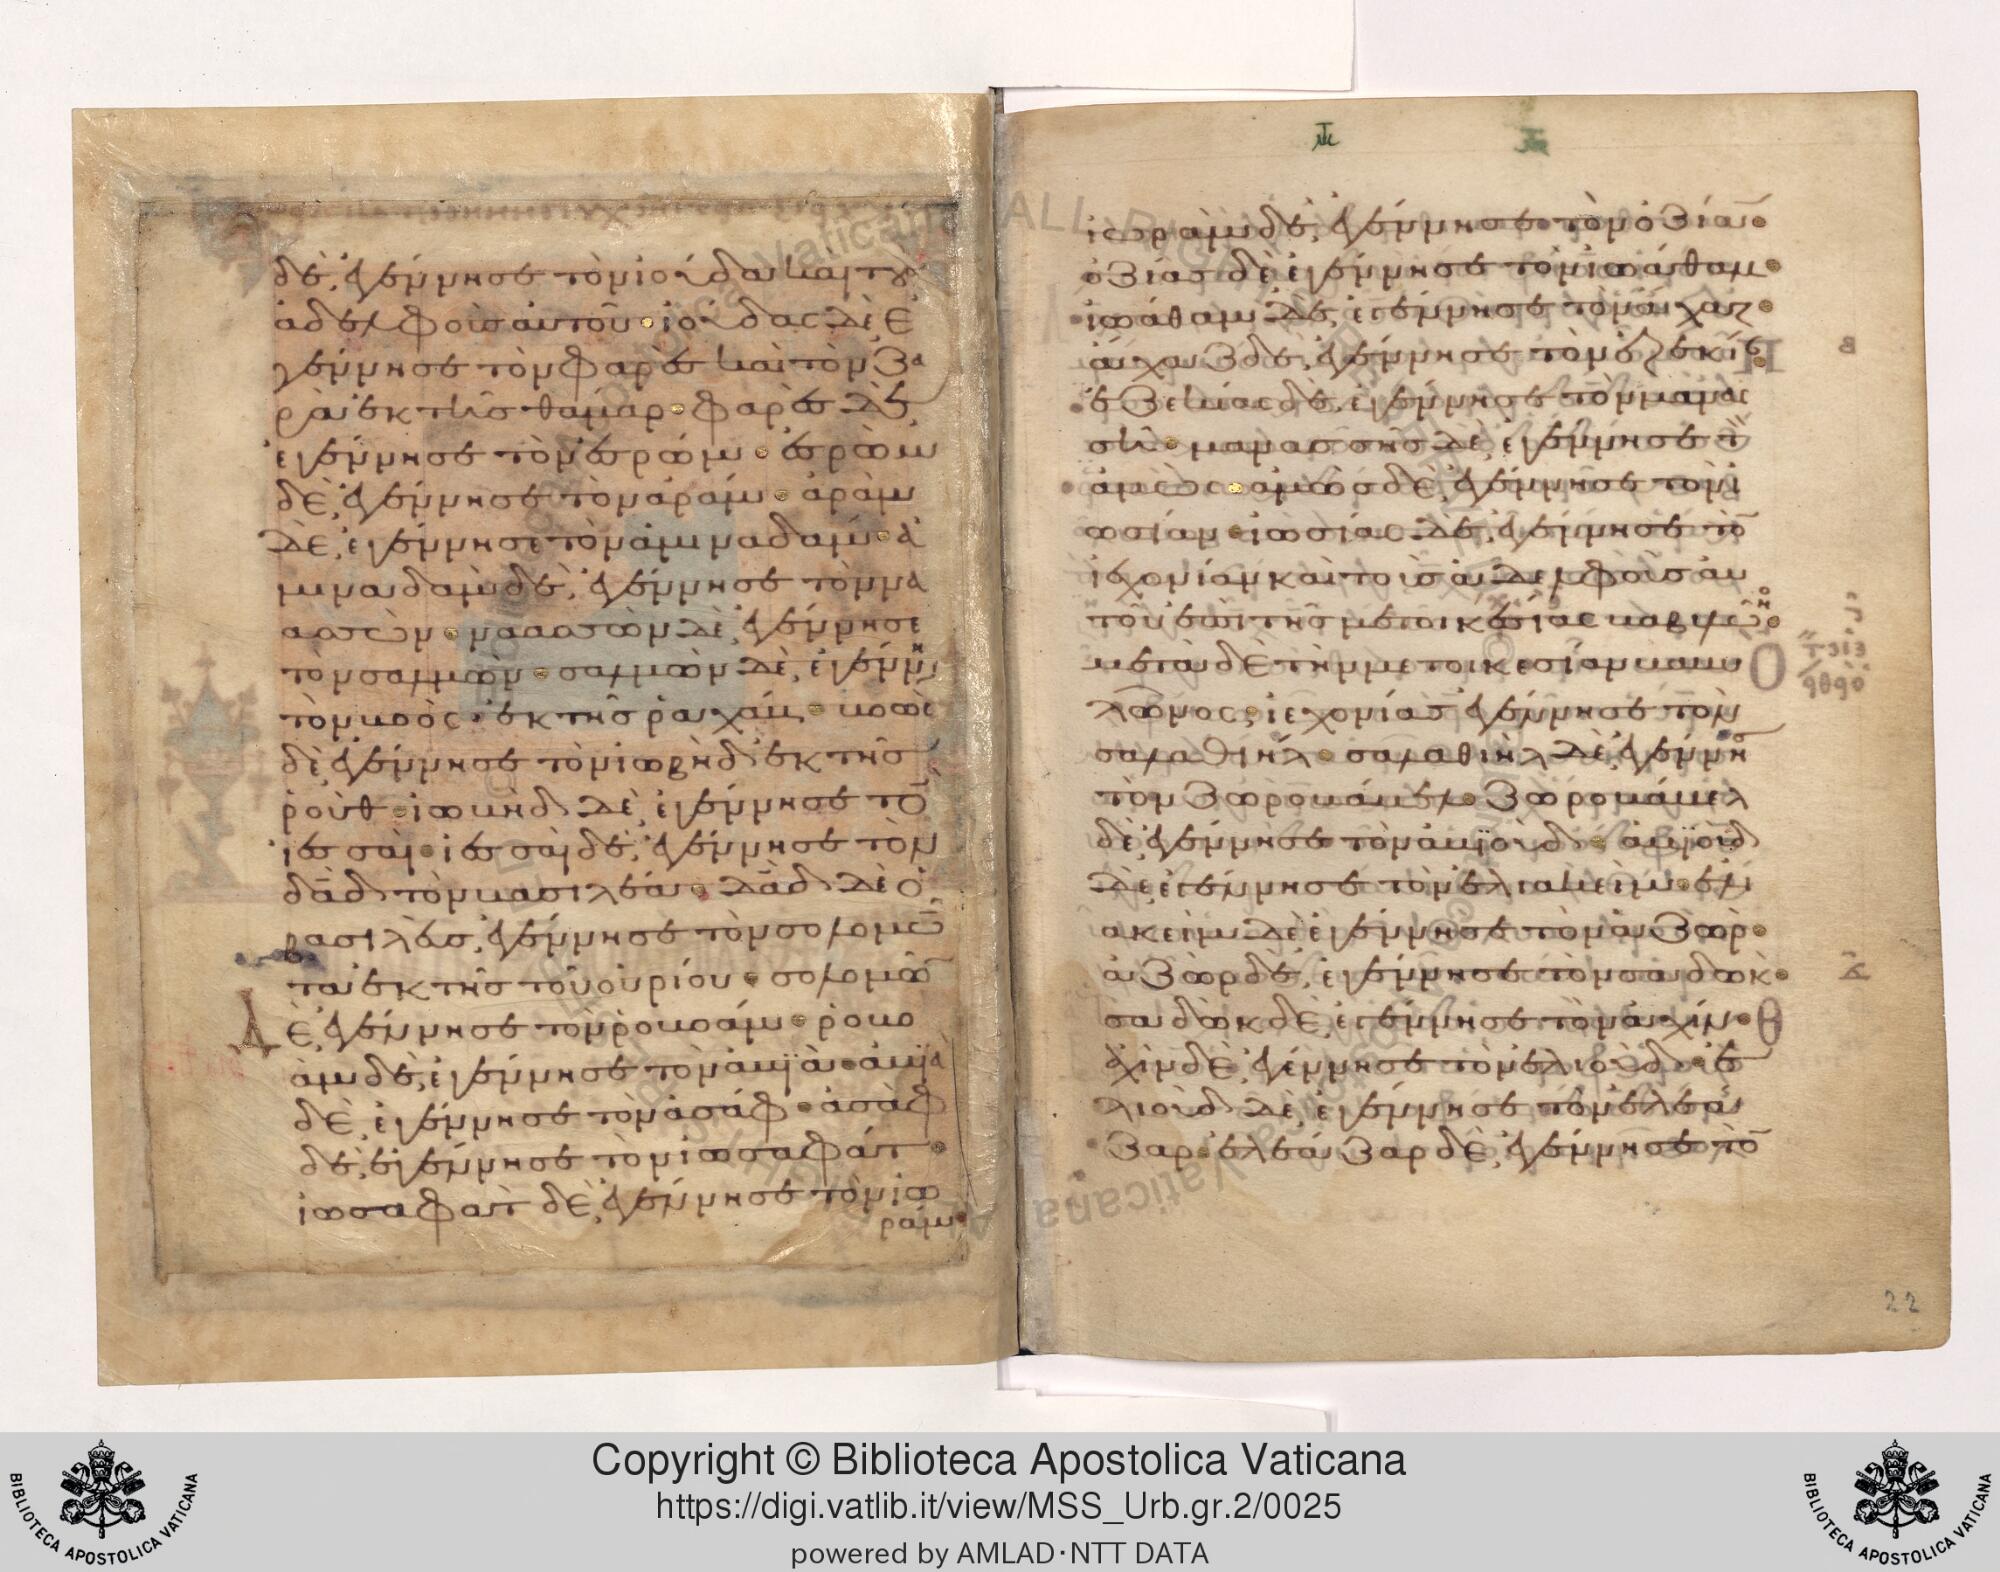 δὲ, ἐγέννησε τὸν ἰούδαν καὶ τοὺ
ἀδελφοὺσ αὐτοῦ· ἰούδας δὲ ἐ
γέννησε τὸν φαρὲσ καὶ τὸν ζα
ρὰ ἐκ τῆσ θάμαρ· φαρὲσ δὲ,
ἐγέννησε τὸν ἐσρώμ· ἐσρὼμ
δὲ, ἐγέννησε τὸν ἀράμ· ἀρὰμ
δὲ, ἐγέννησε τὸν ἀμιναδάμ· ἀ
μιναδὰμ δὲ, ἐγέννησε τὸν να
ασσὼν· ναασσὼν δὲ, ἐγέννησε
τὸν σαλμὼν· σαλμὼν δὲ, ἐγένν
τὸν βοὸς· ἐκ τῆσ ῥαχάβ· βοὸς
δὲ, ἐγέννησε τὸν ἰωβὴδ ἐκ τῆσ
ῥούθ· ἰωβὴδ δὲ, ἐγέννησε τὸ
ἰεσσαί· ἰεσσαὶ δὲ, ἐγέννησε τὸν
δᾱδ τὸν βασιλέα· δᾱδ δὲ ὁ
βασιλεὺσ, ἐγέννησε τὸν σολομῶ
τα ἐκ τῆσ τοῦ οὐρίου· σολομῶ
Δὲ, ἐγέννησε τὸν ῥοβοάμ· ῥοβο
ὰμ δὲ, ἐγέννησε τὸν ἀβϊὰ· ἀβϊὰ
δὲ, ἐγέννησε τὸν ἀσάφ· ἀσὰφ
δὲ, ἐγέννησε τὸν ἰωσαφάτ·
ἰωσαφὰτ δὲ, ἐγέννησε τὸν ἰω
ράμ·
ἰωρὰμ δὲ, ἐγέννησε τὸν ὀζίαν·
ὀζίασ δὲ ἐγέννησε τὸν ἰωάθαμ·
ἰωάθαμ δὲ, ἐγέννησε τὸν ἄχαζ·
ἄχαζ δὲ, ἐγέννησε τὸν ἐζεκί
ἐζεκίας δὲ, ἐγέννησε τὸν μανας
σῆ· μανασσῆσ δὲ, ἐγέννησε τὸ
ἀμὼς· ἀμὼσ δὲ, ἐγέννησε τὸν ἰ
ωσίαν· ἰωσίας δὲ, ἐγέννησε τὸ
ἰεχονίαν καὶ τοὺσ ἀδελφοὺσ αὐ
τοῦ ἐπὶ τῆσ μετοικεσίας βαβυλῶνο·
μετὰ δὲ τὴν μετοικεσίαν βαβυ
λῶνος, ἰεχονίασ ἐγέννησε τὸν
σαλαθιήλ· σαλαθιὴλ δὲ, ἐγέννη
τὸν ζοροβάβελ· ζοροβάβελ
δὲ, ἐγέννησε τὸν ἀβϊούδ· ἀβϊοὺδ
δὲ, ἐγέννησε τὸν ἐλιακείμ· ἐλι
ακεὶμ δὲ ἐγέννησε τὸν ἀζώρ·
ἀζὼρ δὲ, ἐγέννησε τὸν σαδώκ·
σαδὼκ δὲ, ἐγέννησε τὸν ἀχίν·
ἀχὶν δὲ, ἐγέννησε τὸν ἐλιούδ· ἐ
λιοὺδ δὲ, ἐγέννησε τὸν ἐλεά
ζαρ· ἐλεάζαρ δὲ, ἐγέννησε τὸ
22
Copyright © Biblioteca Apostolica Vaticana
https://digi.vatlib.it/view/MSS_Urb.gr.2/0025
powered by AMLAD·NTT DATA
BIBLIOTECA APOSTOLICA VATICANA
BIBLIOTECA APOSTOLICA VATICANA